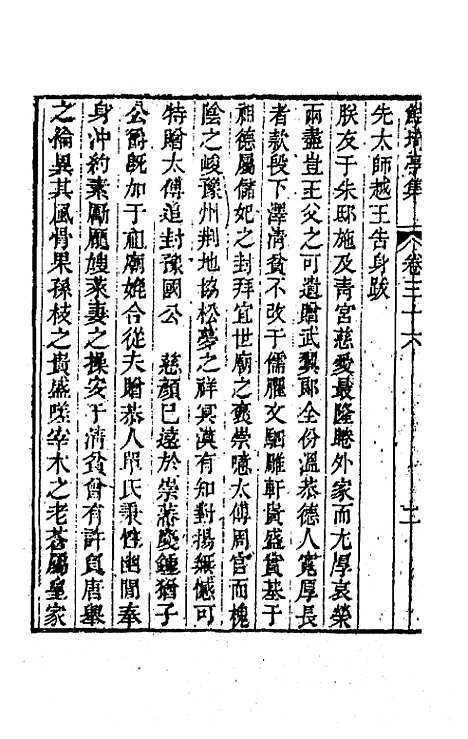 鮚埼亭集 卷三十六 二
先太師越王告身跋
朕友于朱邸施及青宮慈愛最隆睠外家而尤厚哀榮
兩盡豈王父之可遺贈武翼郎全份溫恭德人寬厚長
者款段下澤清貧不改于儒雅文駟雕軒貴盛實基于
祖德屬儲妃之封拜宜世廟之褒崇噫太傅周官而槐
陰之峻豫州荆地協松夢之祥冥漠有知對揚無憾可
特贈太傅追封豫國公 慈顏已遠於崇蕃慶鍾猶子
公爵旣加于祖廟娩合從夫贈恭人單氏秉性幽閒奉
身沖約素勵龎嫂萊妻之操安于淸貧曾有許負唐舉
之倫異其風骨果孫枝之貴盛嗟宰木之老蒼屬皇家